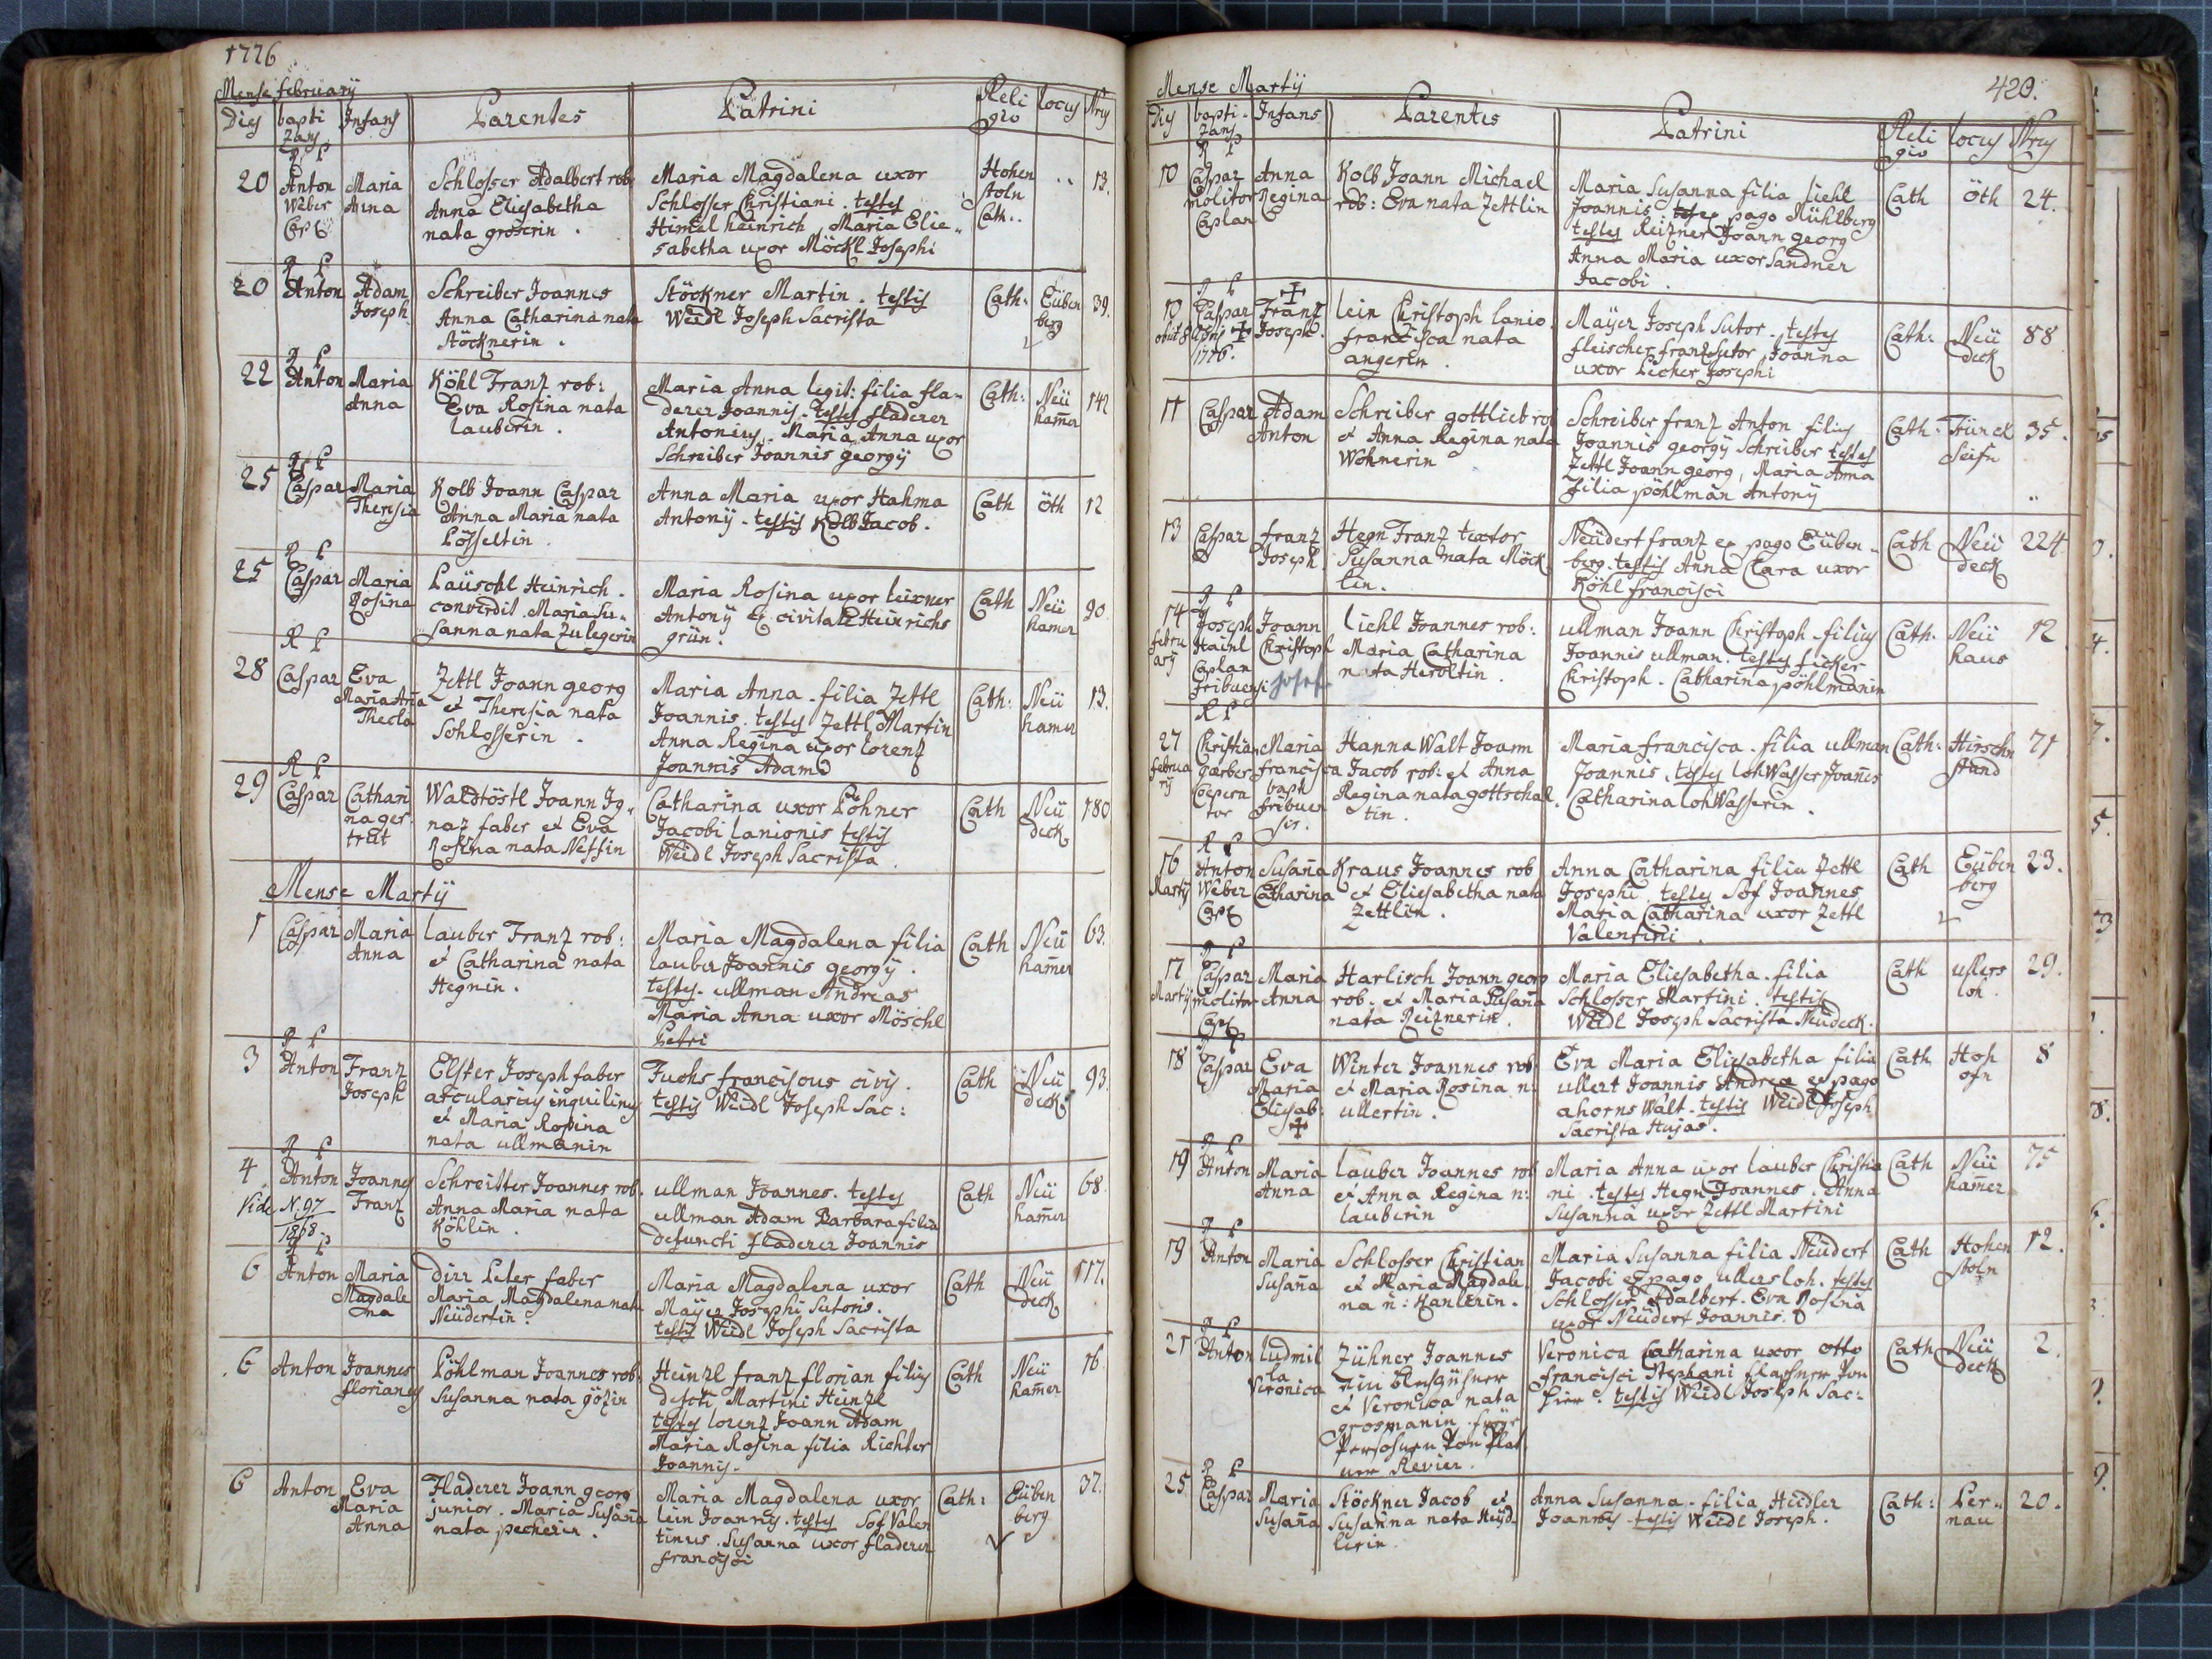 1776
Mense february
Dies bapti zans Infans Parentes Patrini Reli gio locus Nrus
R P
20 Anton Weber Cap Maria Anna
Schlosser Adalbert rob
Anna Eliesabetha
nata groserin .
Maria Magdalena uxor
Schlosser Christiani . testes
Himel heinrich, Maria Elie„
sabetha uxor Möckl Josephi
Hohen stoln Cath. 13.
R P
20 Anton Adam Joseph
Schreiber Joannes
Anna Catharina nata
Stöcknerin .
Stöckner Martin . testis
Weidl Joseph Sacrista
Cath: Eüben berg 39.
R P
22 Anton Maria Anna
Köhl Franz rob:
Eva Rosina nata
lauberin .
Maria Anna legit: filia fla„
derer Joannis . testes fladerer
Antonius . Maria Anna uxor
Schreiber Joannis georgÿ
Cath: Neü hamer 142
R P
25 Caspar Maria Theresia
Kolb Joann Caspar
Anna Maria nata
Lösseltin .
Anna Maria uxor Hahma
Antonÿ . testis Kolb Jacob .
Cath Öth 12
R P
25 Caspar Maria Rosina
Laüschl Heinrich .
Maria Su„
sanna nata Zulegerin
Maria Rosina uxor leixner
Antonÿ ex civitate Heinrichs
grün .
Cath Neü hamer 90
R P
28 Caspar Eva Maria Ana Thecla
Zettl Joann georg
et Theresia nata
Schlosserin .
Maria Anna . filia Zettl
Joannis . testes Zettl Martin
Anna Regina uxor lorenz
Joannis Adami
Cath: Neü hamer 13.
R P
29 Caspar Cathari na ger trut
Waldtöstl Joann Ig„
naz faber et Eva
Rosina nata
Catharina uxor Löhner
Jacobi lanionis testis
Weidl Joseph Sacrista .
Cath Neü deck 180
Mense Martÿ
1 Caspar Maria Anna
lauber Franz rob:
et Catharina nata
Hegnin .
Maria Magdalena filia
lauber Joannis georgÿ .
testes . ullman Andreas
Maria Anna uxor Möschl
Petri
Cath Neü hamer 63.
R P
3 Anton Franz Joseph
Elster Joseph faber
arcularius inquilinus
et Maria Rosina
nata ullmanin
Fuchs franciscus civis .
testis Weidl Joseph Sac:
Cath Neü deck 93.
R P
4 Anton Joannes Franz
Vide N: 97 1868.
Schreitter Joannes rob.
Anna Maria nata
Köhlin .
ullman Joannes . testes
ullman Adam Barbara filia
defuncti fladerer Joannis
Cath Neü hamer 68.
R P
6 Anton Maria Magdale na
dirr Peter faber
Maria Magdalena nata
Neüdertin .
Maria Magdalena uxor
Maÿer Josephi Sutoris .
testis Weidl Joseph Sacrista
Cath Neü deck 117.
6 Anton Joannes florianus
Pöhlman Joannes rob.
Susanna nata götzin
Heinzl franz florian filius
defcti Martini Heinzl
testes lorenz Joann Adam
Maria Rosina filia Richter
Joannis .
Cath Neü hamer 16
6 Anton Eva Maria Anna
Fladerer Joann georg
junior . Maria Susaña
nata pecherin .
Maria Magdalena uxor
lein Joannis . testes Sof Valen
tinus . Susanna uxor fladerer
francisci
Cath: Eüben berg 37.
Mense Martÿ 420.
Dies bapti zans Infans Parentes Patrini Reli gio locus Nrus
R P
10 Caspar molitor Caplan Anna Regina
Kolb Joann Michael
rob: Eva nata Zettlin
Maria Susanna filia liehl
Joannis ex pago Mühlberg
testes Reizner Joann georg
Anna Maria uxor Sandner
Jacobi .
Cath Öth 24.
R P
10 Caspar Franz Joseph .
obiit 8 Aprilis 1776.
lein Christoph lanio .
francisca nata
angerin .
Maÿer Joseph Sutor . testes
fleischer franz Sutor Joanna
uxor Pecher Josephi
Cath: Neü deck 88
11 Caspar Adam Anton
Schreiber gottlieb rob
et Anna Regina nata
Wohnerin
Schreiber franz Anton filius
Joannis georgÿ Schreiber testes
Zettl Joann georg, Maria Anna
filia pöhlman Antonÿ
Cath: Trinck Seifn 35.
13 Caspar franz Joseph .
Hegn Franz textor
Susanna nata Möck
lin .
Neüdert franz ex pago Eüben„
berg . testis Anna Clara uxor
Köhl francisci
Cath Neü deck 224
R P
14 febru arÿ Joseph Hainl Caplan fribuensi Joann Christoph Josef
liehl Joannes rob:
Maria Catharina
nata Heroltin .
ullman Joann Christoph . filius
Joannis ullman . testes ficker
Christoph . Catharina pöhlmanin
Cath. Neü haus 12
R P
27 februa rÿ Christian garber Coopera tor Maria francisca bapt: fribuen sis .
Hanna Walt Joann
Jacob rob: et Anna
Regina nata gottschal
tin .
Maria francisca . filia ullman
Joannis . testes lohWasser Joañes
Catharina lohWasserin .
Cath: Hirschn stand 71
R P
16 Martÿ Anton Weber Cap Susaña Catharina
Kraus Joannes rob
et Eliesabetha nata
Zettlin .
Anna Catharina filia Zettl
Josephi . testes Sof Joannes
Maria Catharina uxor Zettl
Valentini .
Cath Eüben berg 23.
R P
17 Martÿ Caspar molitor Cap Maria Anna
Harlisch Joann georg
rob. et Maria Susaña
nata Reiznerin .
Maria Eliesabetha . filia
Schlosser Martini . testis
Weidl Joseph Sacrista Neüdeck .
Cath ullers loh . 29.
R P
18 Caspar Eva Maria Eliesab:
Winter Joannes rob
et Maria Rosina n:
ullertin .
Eva Maria Eliesabetha filia
ullert Joannis Andrea ex pago
ahornsWalt . testis Weidl Joseph
Sacrista Hujas .
Cath Hoh ofn 8
R P
19 Anton Maria Anna
lauber Joannes rob
et Anna Regina n:
lauberin
Maria Anna uxor lauber Christia
ni . testes Hegn Joannes . Anna
Susanna uxor Zettl Martini
Cath Neü hamer 75
R P
19 Anton Maria Susaña
Schlosser Christian
et Maria Magdale„
na n: Hanlerin .
Maria Susanna filia Neüdert
Jacobi ex pago ullersloh . testes
Schlosser Adalbert . Eva Rosina
uxor Neüdert Joannis .
Cath Hohen stoln 12.
R P
21 Anton ludmil la Veronica
Zühner Joannes
et Veronica nata
grosmanin .
Revier .
Veronica Catharina uxor otto
francisci Stephani
testis Weidl Joseph Sac:
Cath Neü deck 2.
R P
25. Caspar Maria Susaña
Stöckner Jacob et
Susanna nata Heüd„
lerin .
Anna Susanna . filia Heidler
Joannis . testis Weidl Joseph .
Cath: Per„ nau 20.